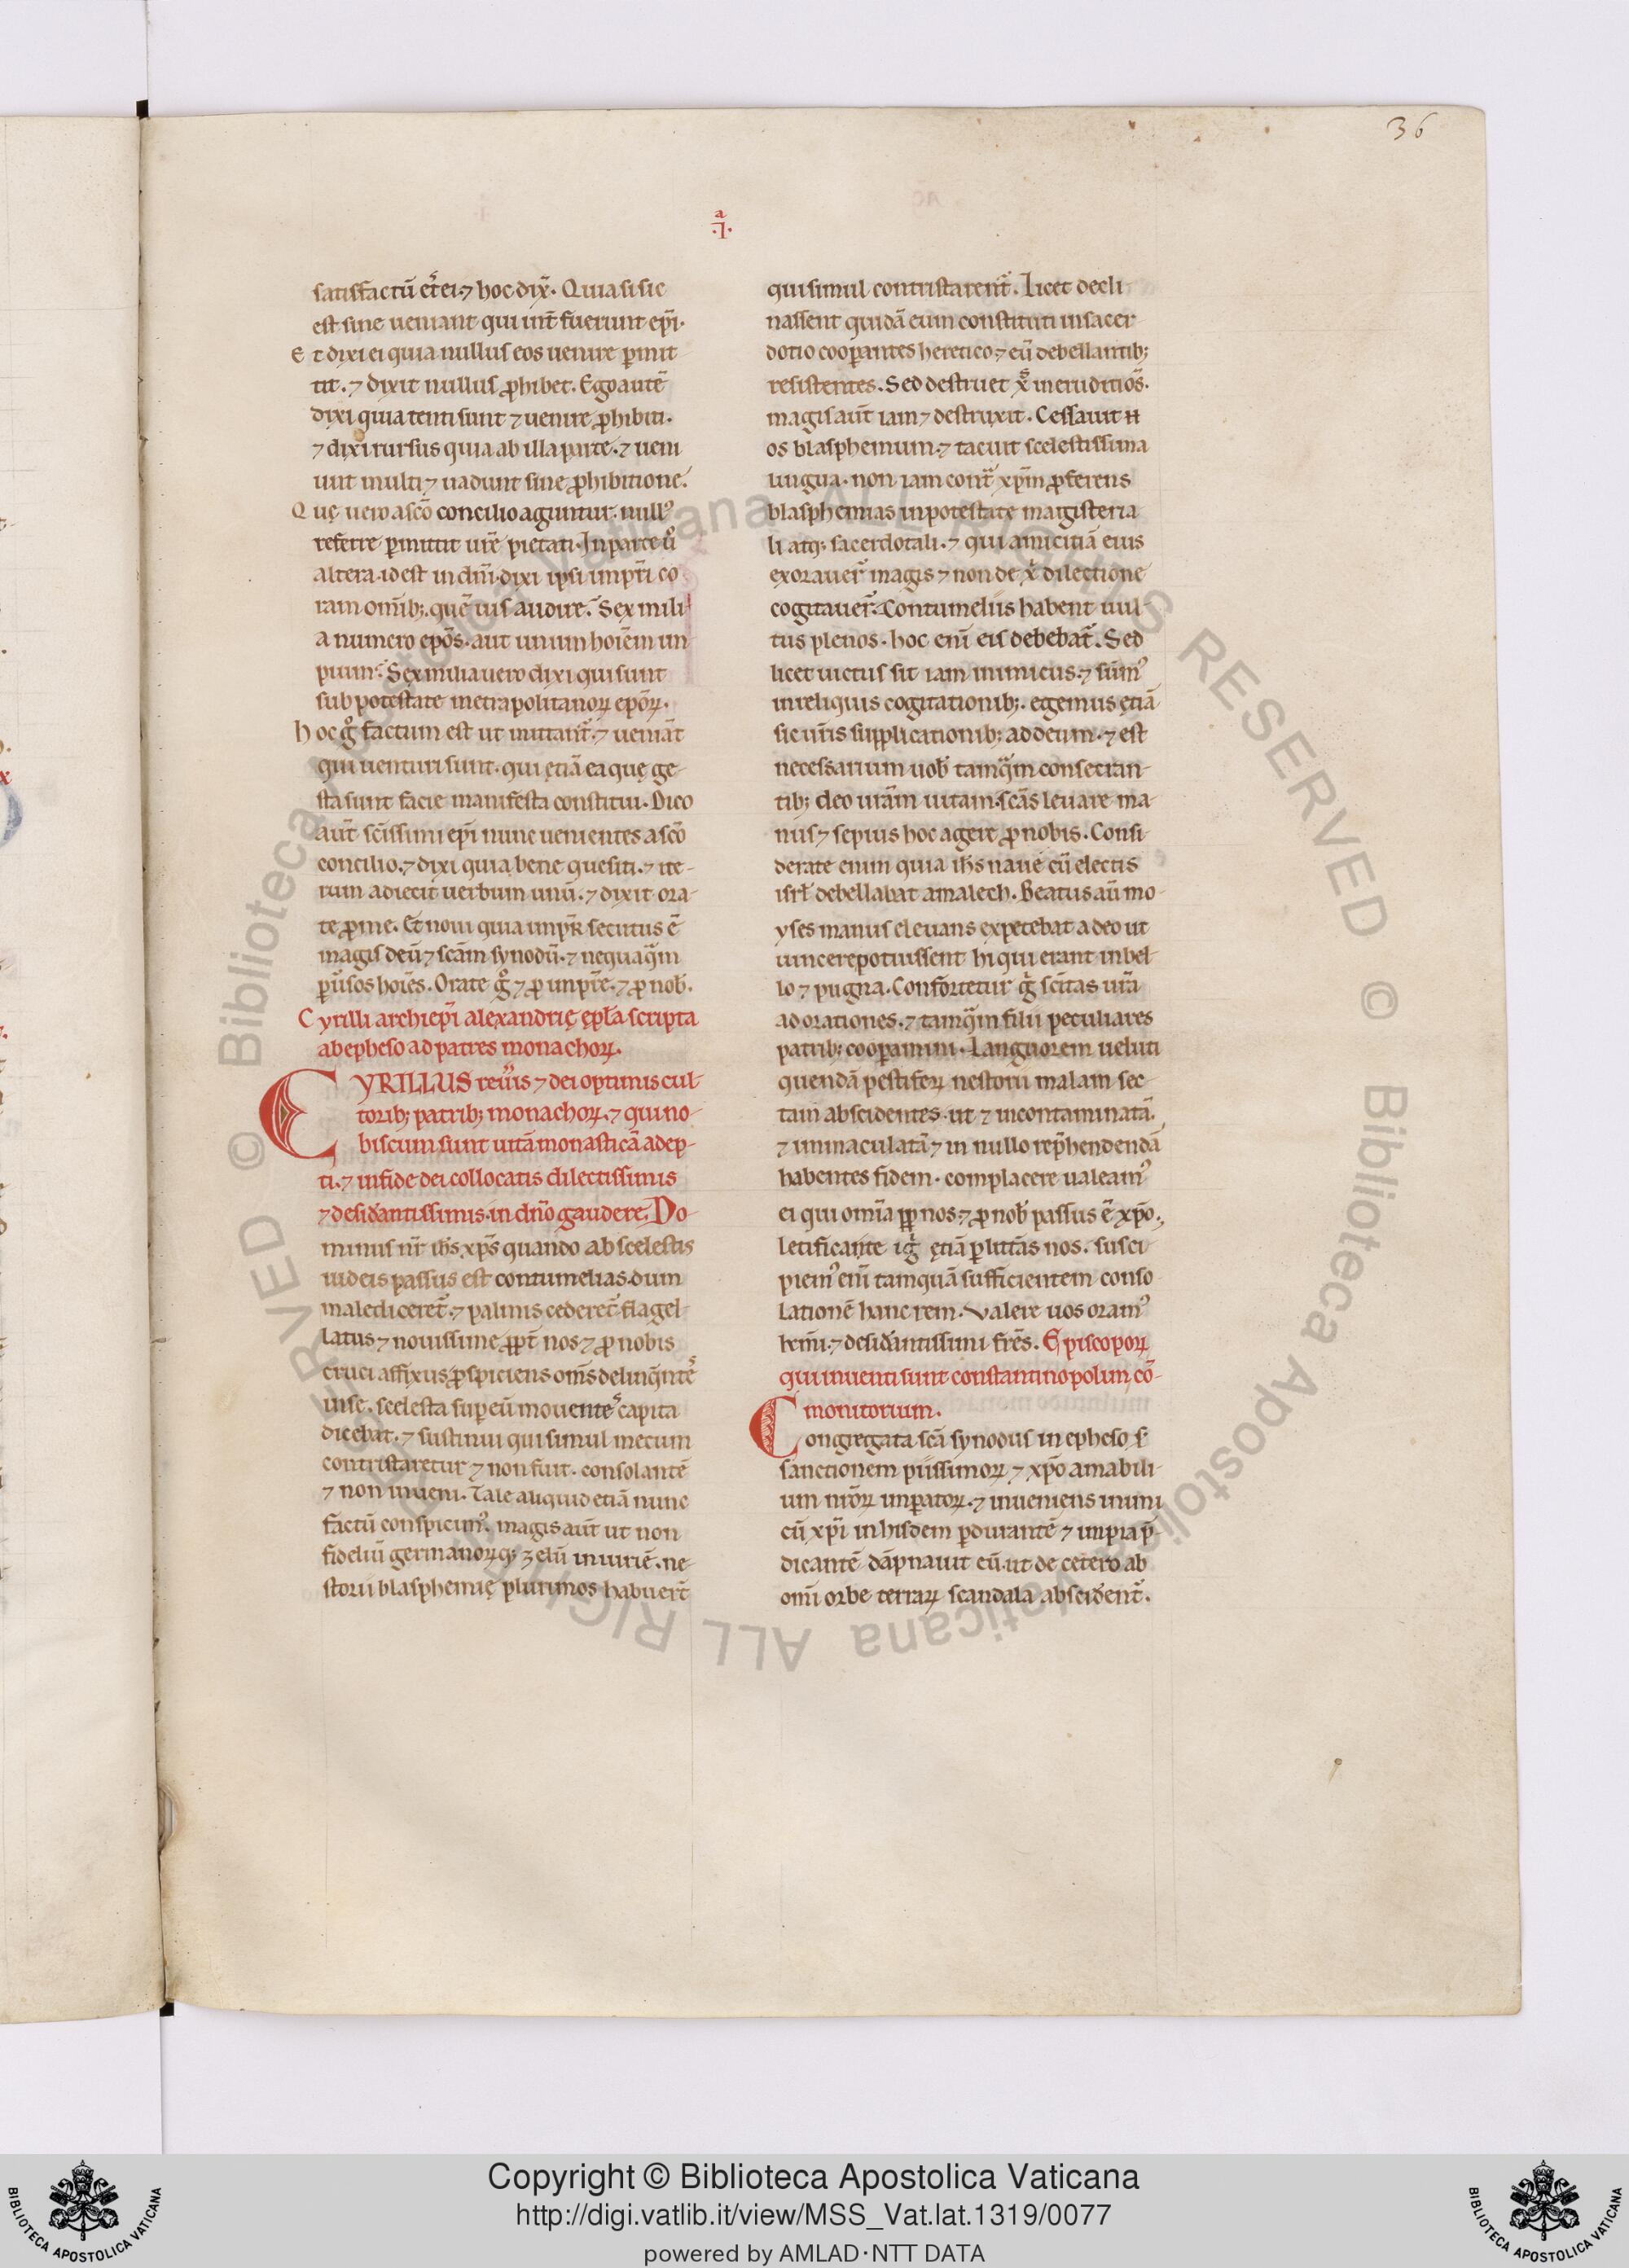 36
a
·I·
satisfactū ēt ei. ⁊ hoc dix̄. Quia si sic
est sine ueniant qui int̄ fuerunt ep̄i.
Et dixi ei quia nullus eos uenire ꝑmit
tit. ⁊ dixit nullus ꝓhibet. Ego autē
dixi quia tenti sunt ⁊ uenire ꝓhibiti.
⁊ dixi rursus quia ab illa parte. ⁊ ueni
unt multi ⁊ uadunt sine ꝓhibitione.
Quę uero a sc̄o concilio aguntur. null᾿
referre ꝑmittit ur̄e pietati. In parte u᷎o
altera. id est in dn̄i. dixi ipsi imp̄ri co
ram omīb;. quē uis audire. Sex mili
a numero ep̄os. aut unum hoīem im
pium. Sex milia uero dixi qui sunt
sub potestate metrapolitanoꝝ ep̄oꝝ.
hoc gͦ factum est ut mittant᷑. ⁊ ueniāt
qui uenturi sunt. qui etiā ea quę ge
sta sunt facie manifesta constitui. Dico
aut̄ sc̄issimi ep̄i nunc uenientes a sc̄o
concilio. ⁊ dixi quia bene quesiti. ⁊ ite-
rum adiecit uerbum unū. ⁊ dixit ora-
te ꝓ me. Et noui quia imp̄r secutus ē
magis deū ⁊ sc̄am synodū. ⁊ nequaq̄m
ꝑu᷎sos hoīes. Orate gͦ ⁊ ꝓ imp̄re. ⁊ ꝓ nob̄.
Cyrilli archiep̄i alexandrię epl̄a scripta
ab epheso ad patres monachoꝝ.
CYRILLUS reuīs ⁊ dei optimis cul-
torib; patrib; monachoꝝ. ⁊ qui no-
biscum sunt uitā monasticā adep-
ti. ⁊ in fide dei collocatis dilectissimis
⁊ desid̄antissimis. in dn̄o gaudere. Do-
minus nr̄ ih̄s xp̄s quando ab scelestis
iudeis passus est contumelias. dum
malediceret᷑. ⁊ palmis cederet᷑ flagel-
latus ⁊ nouissime ꝓpt̄ nos ⁊ ꝓ nobis
cruci affixus ꝓspiciens om̄s delinq̄ntes
in se. scelesta sup eū mouentes capita
dicebat. ⁊ sustinui qui simul mecum
contristaretur ⁊ non fuit. consolantē
⁊ non inueni. Tale aliquid etiā nunc
factū conspicim᾿. magis aut̄ ut non
fideliū germanoꝝq; zelū iniuriē. ne-
storii blasphemię plurimos habuert̄
qui simul contristarent᷑. Licet decli
nassent quidā eum constituti in sacer
dotio cooꝑantes heretico. ⁊ eū debellantib;
resistentes. Sed destruet xp̄s ineruditos.
magis aut̄ iam ⁊ destruxit. Cessauit .n.
os blasphemum. ⁊ tacuit scelestissima
lingua. non iam cont᷑ xp̄m ꝓferens
blasphemias in potestate magisteria
li atq; sacerdotali. ⁊ qui amicitiā eius
exorauer̄ magis ⁊ non de xp̄i dilectione
cogitauer̄. Contumeliis habent uul
tus plenos. hoc eni᷑ eis debebat᷑. Sed
licet uictus sit iam inimicus. ⁊ sum᾿
in reliquis cogitationib;. egemus etiā
sic ur̄is supplicationib; ad deum. ⁊ est
necessarium uob̄ tamq̄m consecran-
tib; deo ur̄am uitam. sc̄as leuare ma-
nus ⁊ sepius hoc agere ꝓ nobis. Consi-
derate enim quia ih̄s naue cū electis
isrl̄ debellabat amalech. Beatus aū mo-
yses manus eleuans expetebat a deo ut
uincere potuissent hi qui erant in bel-
lo ⁊ pugna. Confortetur gͦ sc̄itas ur̄a
ad orationes. ⁊ tamq̄m filii peculiares
patrib; cooꝑamini. Languorem ueluti
quendā pestiferꝝ nestorii malam sec-
tam abscidentes. ut ⁊ incontaminatā.
⁊ immaculatā ⁊ in nullo rep̄hendendā
habentes fidem. complacere ualeam᾿
ei qui om̄ia ꝓp nos. ⁊ ꝓ nob̄ passus ē xp̄o.
letificante ig᷑ etiā ꝑ litt̄as nos. susci
piem᾿ eni᷑ tamquā sufficientem conso
lationē hanc rem. Valere uos oram᾿
kr̄mi. ⁊ desid̄antissimi fr̄es. Episcopoꝝ
qui inuenti sunt constantinopolim, cō-
monitorium.
Congregata sc̄a synodus in epheso. s̄
sanctionem piissimoꝝ ⁊ xp̄o amabili-
um nr̄oꝝ imꝑatoꝝ. ⁊ inueniens inimi
cū xp̄i in hisdem ꝑdurantē ⁊ impia p̄-
dicantē dāpnauit eū. ut de cetero ab
omi᷑ orbe terraꝝ scandala absciderent᷑.
Copyright © Biblioteca Apostolica Vaticana
http://digi.vatlib.it/view/MSS_Vat.lat.1319/0077
powered by AMLAD·NTT DATA
BIBLIOTECA APOSTOLICA VATICANA
BIBLIOTECA APOSTOLICA VATICANA
© Biblioteca Apostolica Vaticana ALL RIGHTS RESERVED © Biblioteca Apostolica Vaticana ALL RIGHTS RESERVED